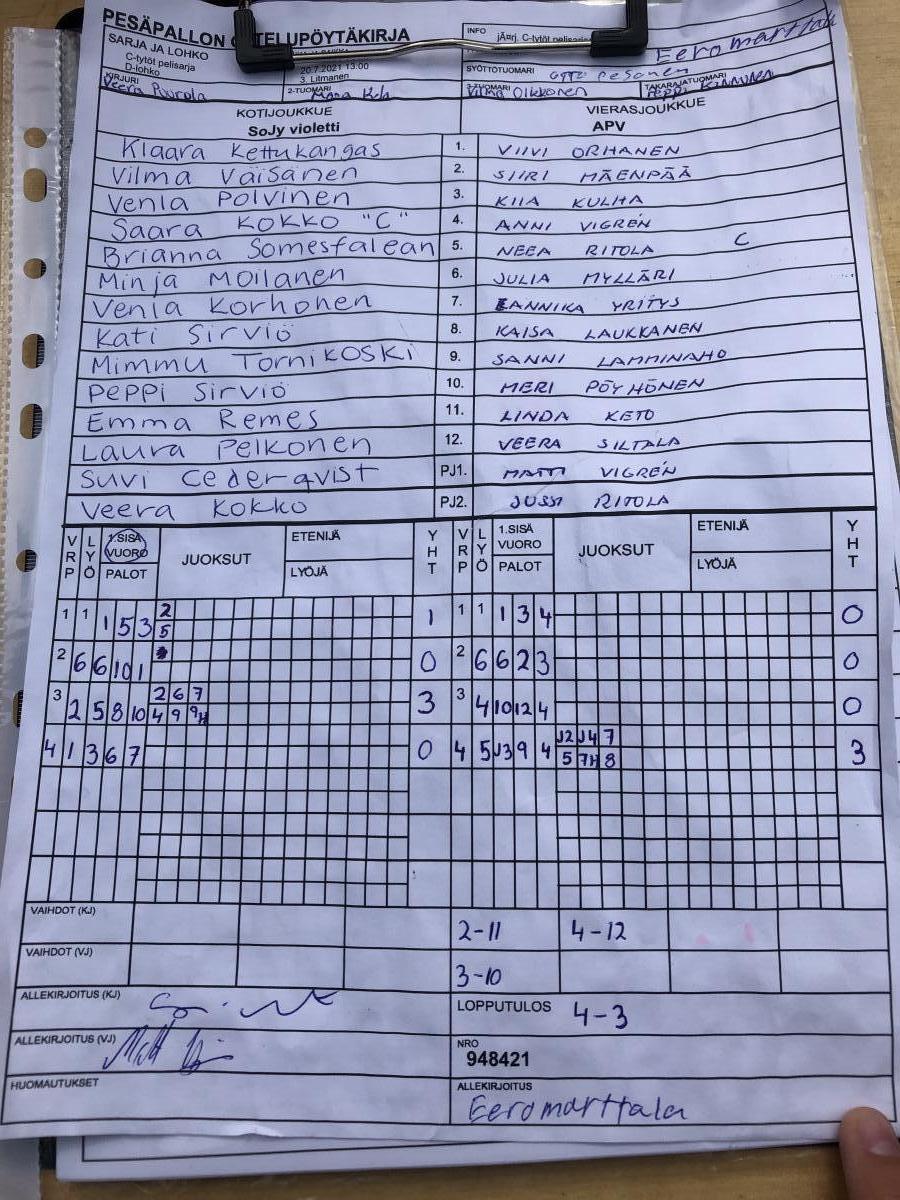 PESÄPALLON OTTELUPÖYTÄKIRJA
SARJA JA LOHKO
C-tytöt pelisarja
D-lohko
20.7.2021 13.00
3. Litmanen
INFO
C-tytöt pelisarja
Eero marttala
SYÖTTÖTUOMARI
Otto Pesonen
KIRJURI
Veera Puurola
2-TUOMARI
3-TUOMARI
Vilma Oikkonen
TAKARAJATUOMARI
KOTIJOUKKUE
SoJy violetti
VIERASJOUKKUE
APV
Klaara Kettukangas 1. VIIVI ORHANEN
Vilma Väisänen 2. SIIRI MÄENPÄÄ
Venla Polvinen 3. KIIA KULHA
Saara KOKKO "C" 4. ANNI VIGREN
Brianna Somesfalean 5. NEEA RITOLA C
Minja Moilanen 6. JULIA MYLLÄRI
Venla Korhonen 7. ANNIKA YRITYS
Kati Sirviö 8. KAISA LAUKKANEN
Mimmu Tornikoski 9. SANNI LAMMINAHO
Peppi Sirviö 10. MERI PÖYHÖNEN
Emma Remes 11. LINDA KETO
Laura Pelkonen 12. VEERA SILTALA
Suvi Cederqvist PJ1. MATTI VIGREN
Veera Kokko PJ2. JUSSI RITOLA
VRP LYÖ 1.SISÄ VUORO PALOT JUOKSUT ETENIJÄ LYÖJÄ YHT VRP LYÖ 1.SISÄ VUORO PALOT JUOKSUT ETENIJÄ LYÖJÄ YHT
1 1 1 5 3 2 1 1 1 1 3 4 0
5
2 6 6 10 1 0 2 6 6 2 3 0
3 2 5 8 10 2 6 7 3 3 4 10 12 4 0
4 9 9H
4 1 3 6 7 0 4 5 J3 9 4 J2 J4 7 3
5 7H 8
VAIHDOT (KJ) 2-11 4-12
VAIHDOT (VJ) 3-10
ALLEKIRJOITUS (KJ) LOPPUTULOS 4-3
ALLEKIRJOITUS (VJ) NRO
948421
HUOMAUTUKSET ALLEKIRJOITUS
Eero marttala